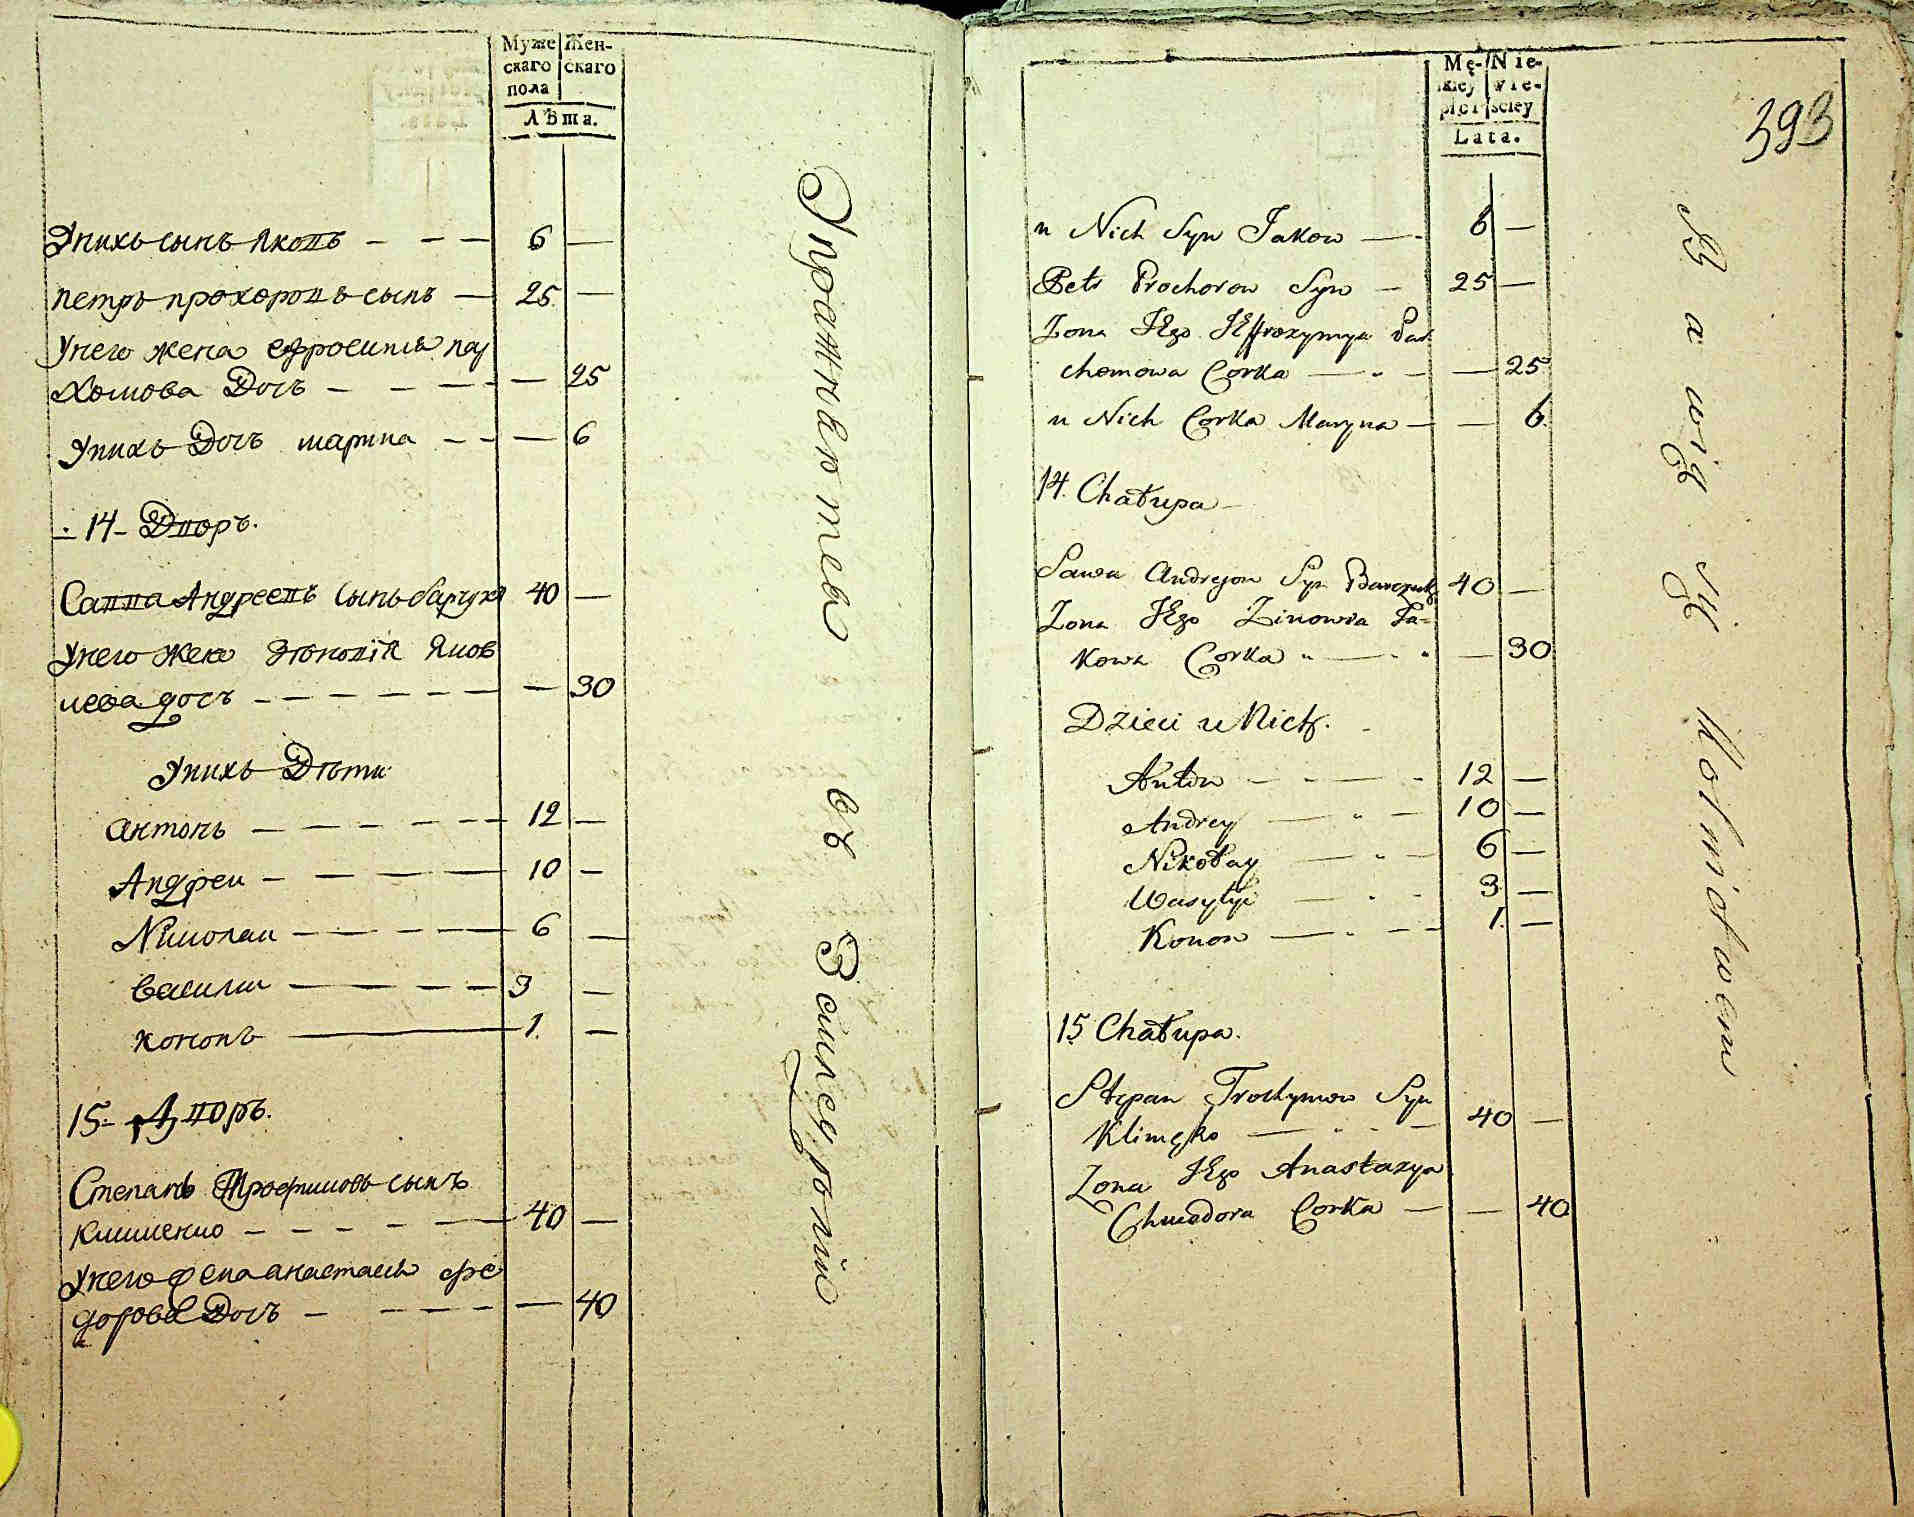 Муже Жен-
скаго скаго
пола
Лѣта.
Унихъ сынъ Яковъ — — — 6 —
петръ прохоровъ сынъ — 25 —
Унего жена ефросиния пау
хомова Дочь — — — — 25
Унихъ Дочь марина — — — 6
14 - Дворъ.
Савва Андреевъ Сынъ барчукъ 40 —
Унего жена зѣновія Яков
лева дочь — — — — — — 30
Унихъ Дѣти
антонъ — — — — — 12 —
Андреи — — — — 10 —
Николаи — — — — 6 —
Василии — — — — 3 —
кононъ — 1. —
15 - Дворъ.
Степанъ Трофимовъ сынъ
клименко — — — — — 40 —
Унего жена анастасия фе
дорова Дочь — — — — — 40
Упражняютса въ Земледѣлии
Mę- Nie-
skiey wie-
płci sciey
Lata.
393
u Nich Syn Jakow — 6 —
Petr Prochorow Syn — 25 —
Zona JEgo JEffrozynya Pac
chomowa Corka — — — 25
u Nich Corka Maryna — — 6.
14. Chałupa
Sawa Andrejow Syn Barczuk 40 —
Zona JEgo Zinowia Ja=
kowa Corka — — 30
Dzieci u Nich.
Anton — — — 12 —
Andrey — — 10 —
Nikołay — — 6 —
Wasylyi — — 3 —
Konon — — — 1. —
15 Chałupa.
Stepan Trochymow Syn
Klimęko — — 40 —
Zona JEgo Anastazya
Chwedora Corka — — 40
Bawią się Rolnictwem